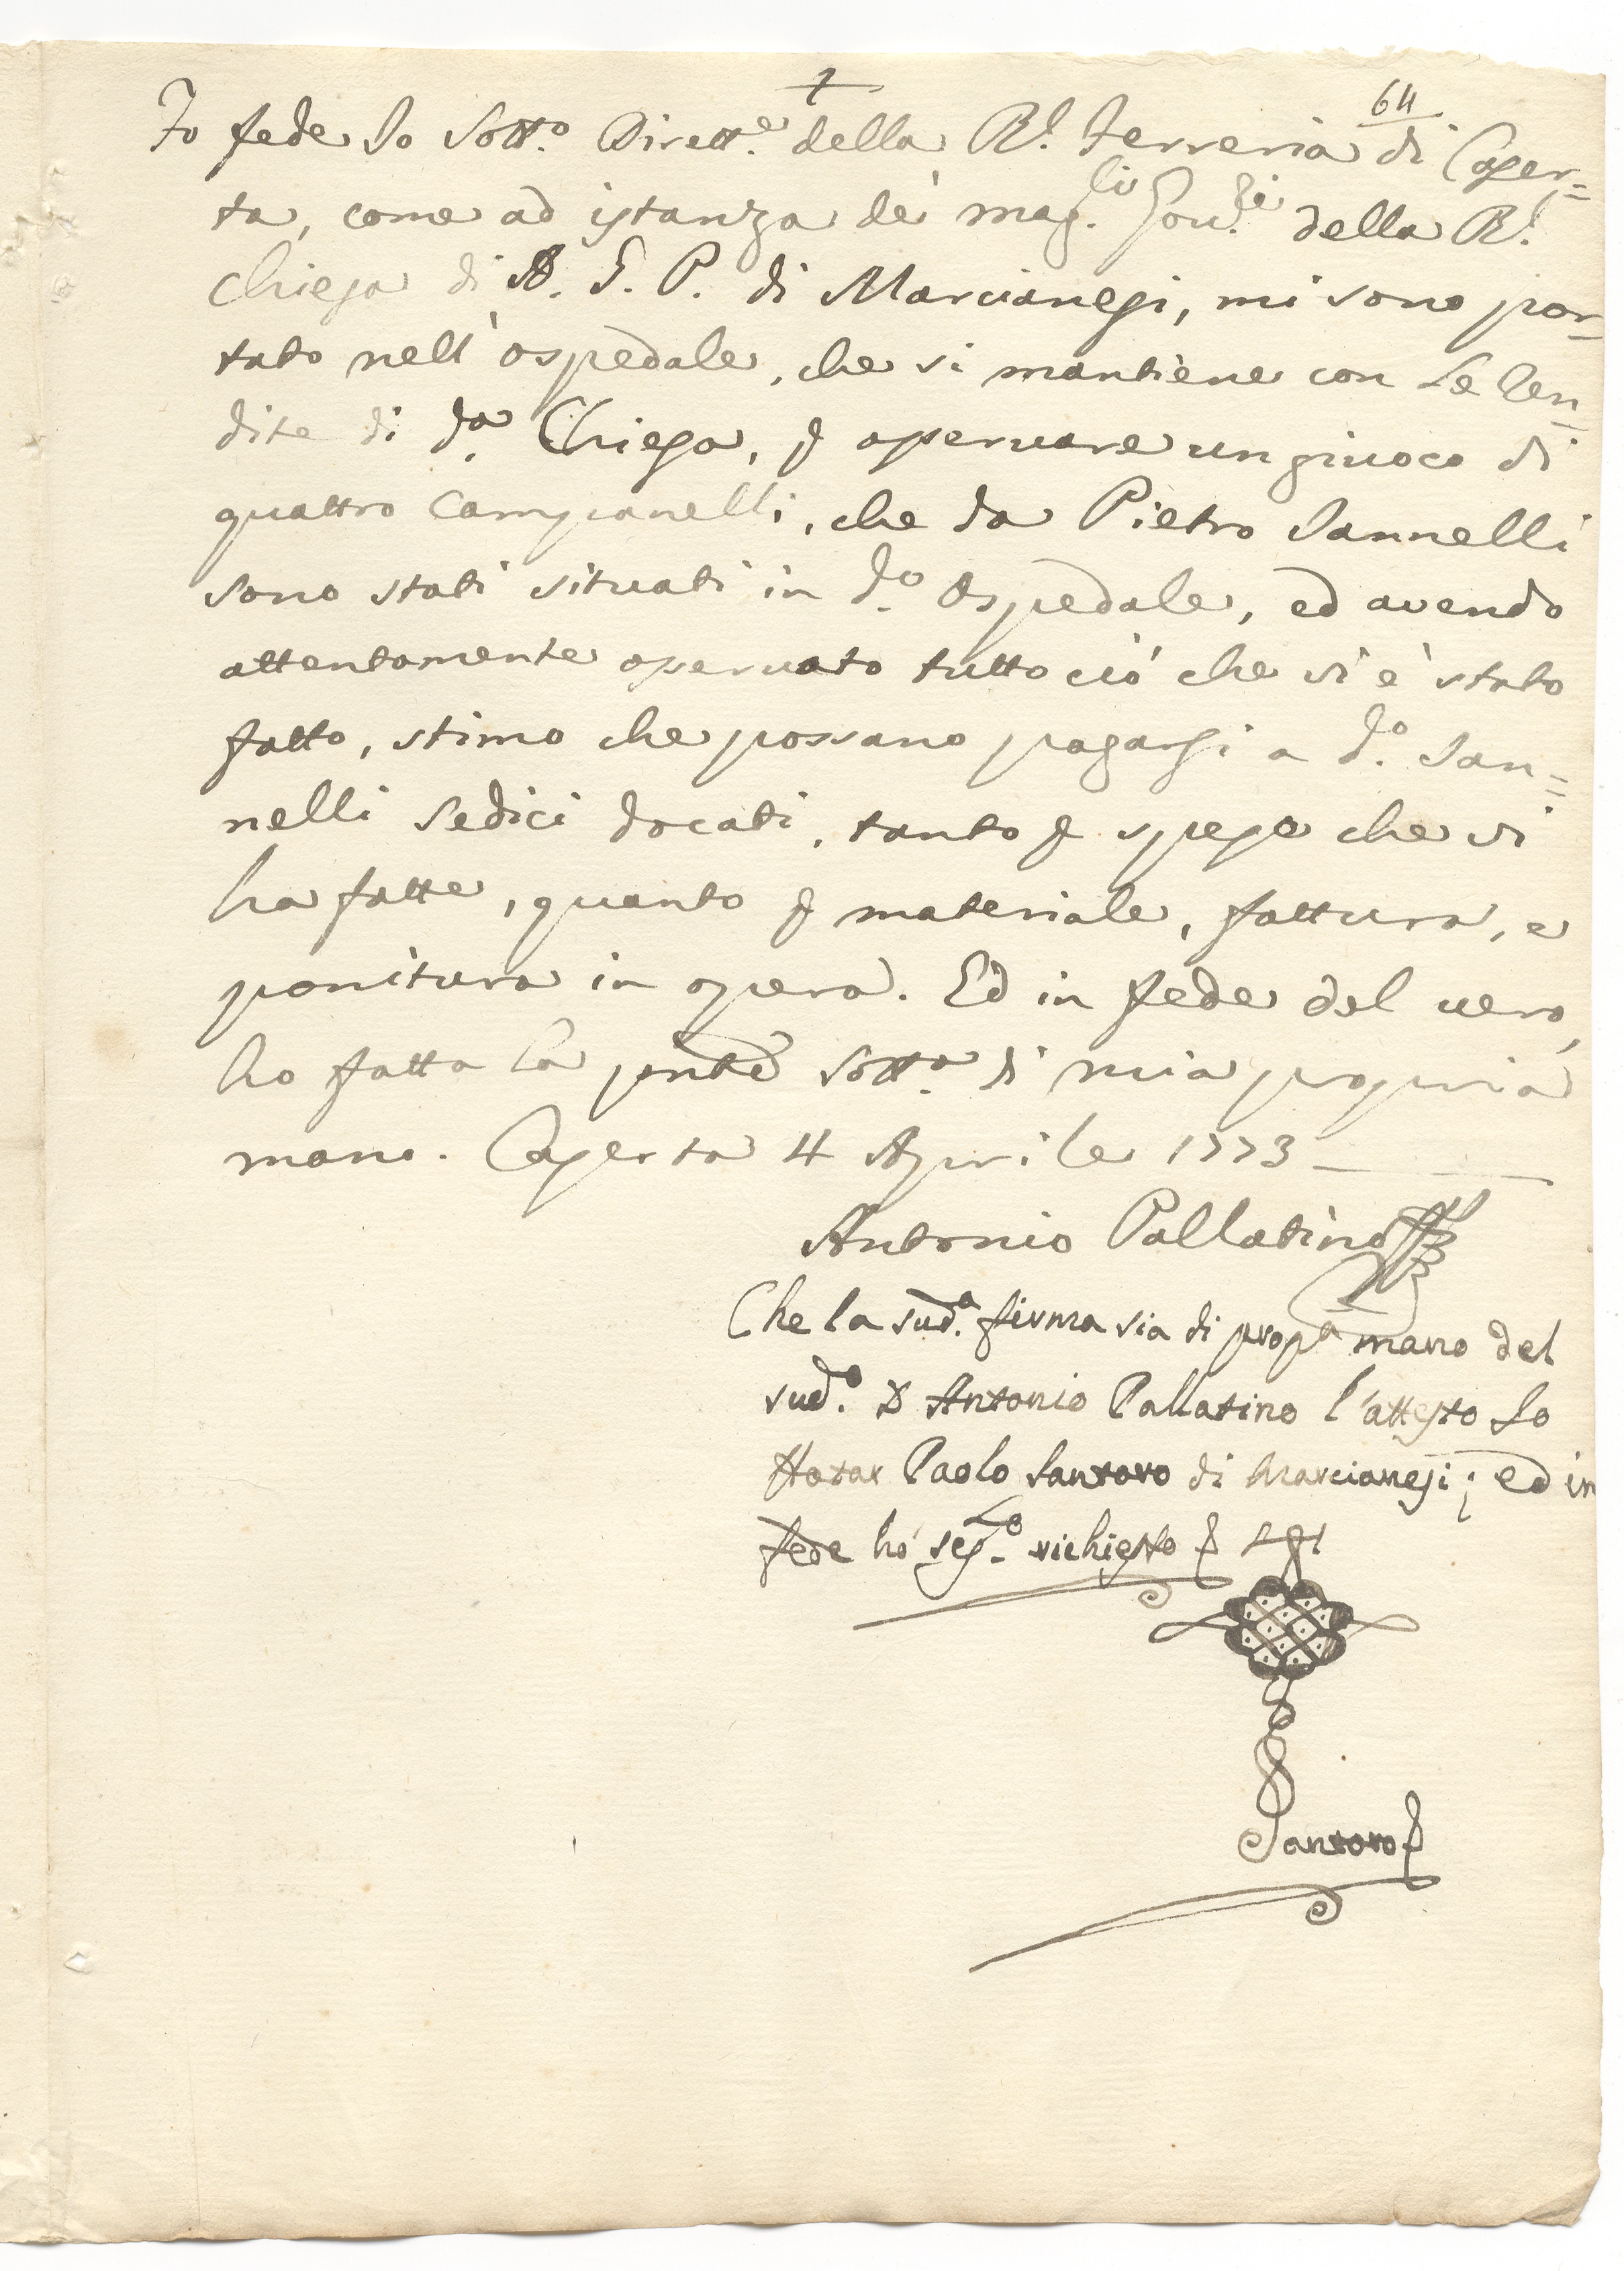 64
Fo fede Io Sott.o Dirett.e della R.l Ferreria di Caser=
ta, come ad istanza de' mag.ci Gov.ri della R.l
Chiesa di A. G. P. di Marcianesi, mi sono por-
tato nell' ospedale, che si mantiene con le Ren-
dite di d.a Chiesa, p osservare un giuoco di
quattro Campanelli, che da Pietro Iannelli
sono stati situati in d.o Ospedale, ed avendo
attentamente osservato tutto ciò che vi è stato
fatto, stimo che possano pagarsi a d.o Ian=
nelli sedici docati, tanto p spese che vi
ha fatte, quanto p materiale, fattura, e
ponitura in opera. Ed in fede del vero,
ho fatta la pnte sott.a di mia propria
mano. Caserta 4 Aprile 1773
Antonio Pallatino
Che la sud.a firma sia di prop.a mano del
sud.o D Antonio Pallatino l'attesto Io
Notar Paolo Santoro di Marcianesi; ed in
fede hò seg.to richiesto
Santoro